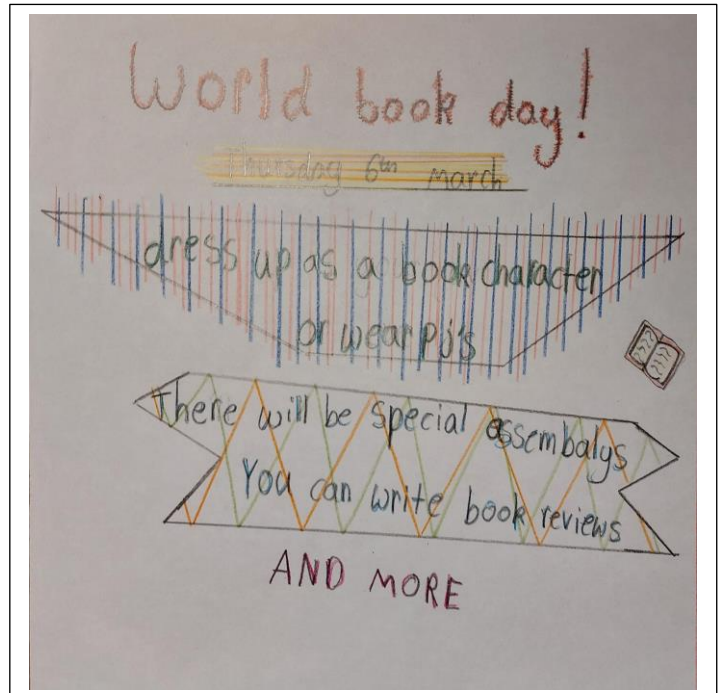 World book day!
Thursday 6th March
dress up as a book character
or wear pj's
There will be special assembalys
You can write book reviews
AND MORE